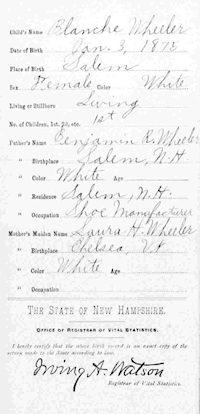 Child's Name Blanche Wheeler
Date of Birth Jan. 3, 1878
Place of Birth Salem
Sex Female Color White
Living or Stillborn Living
No. of Children, 1st, 2d, etc. 1st
Father's Name Benjamin R. Wheeler
" Birthplace Salem, N.H.
" Color White Age
" Residence Salem, N.H.
" Occupation Shoe Manufacturer
Mother's Maiden Name Laura H. Wheeler
" Birthplace Chelsea, Vt
" Color White Age
" Occupation
THE STATE OF NEW HAMPSHIRE.
OFFICE OF REGISTRAR OF VITAL STATISTICS.
I hereby certify that the above birth record is an exact copy of the
return made to the State according to law.
Irving A. Watson
Registrar of Vital Statistics.